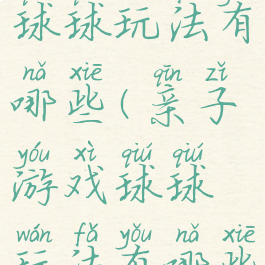 球球玩法有
nǎ xiē qīn zǐ
哪些(亲子
yóu xì qiú qiú
游戏球球
wán fǎ yǒu nǎ xiē
玩法有哪些